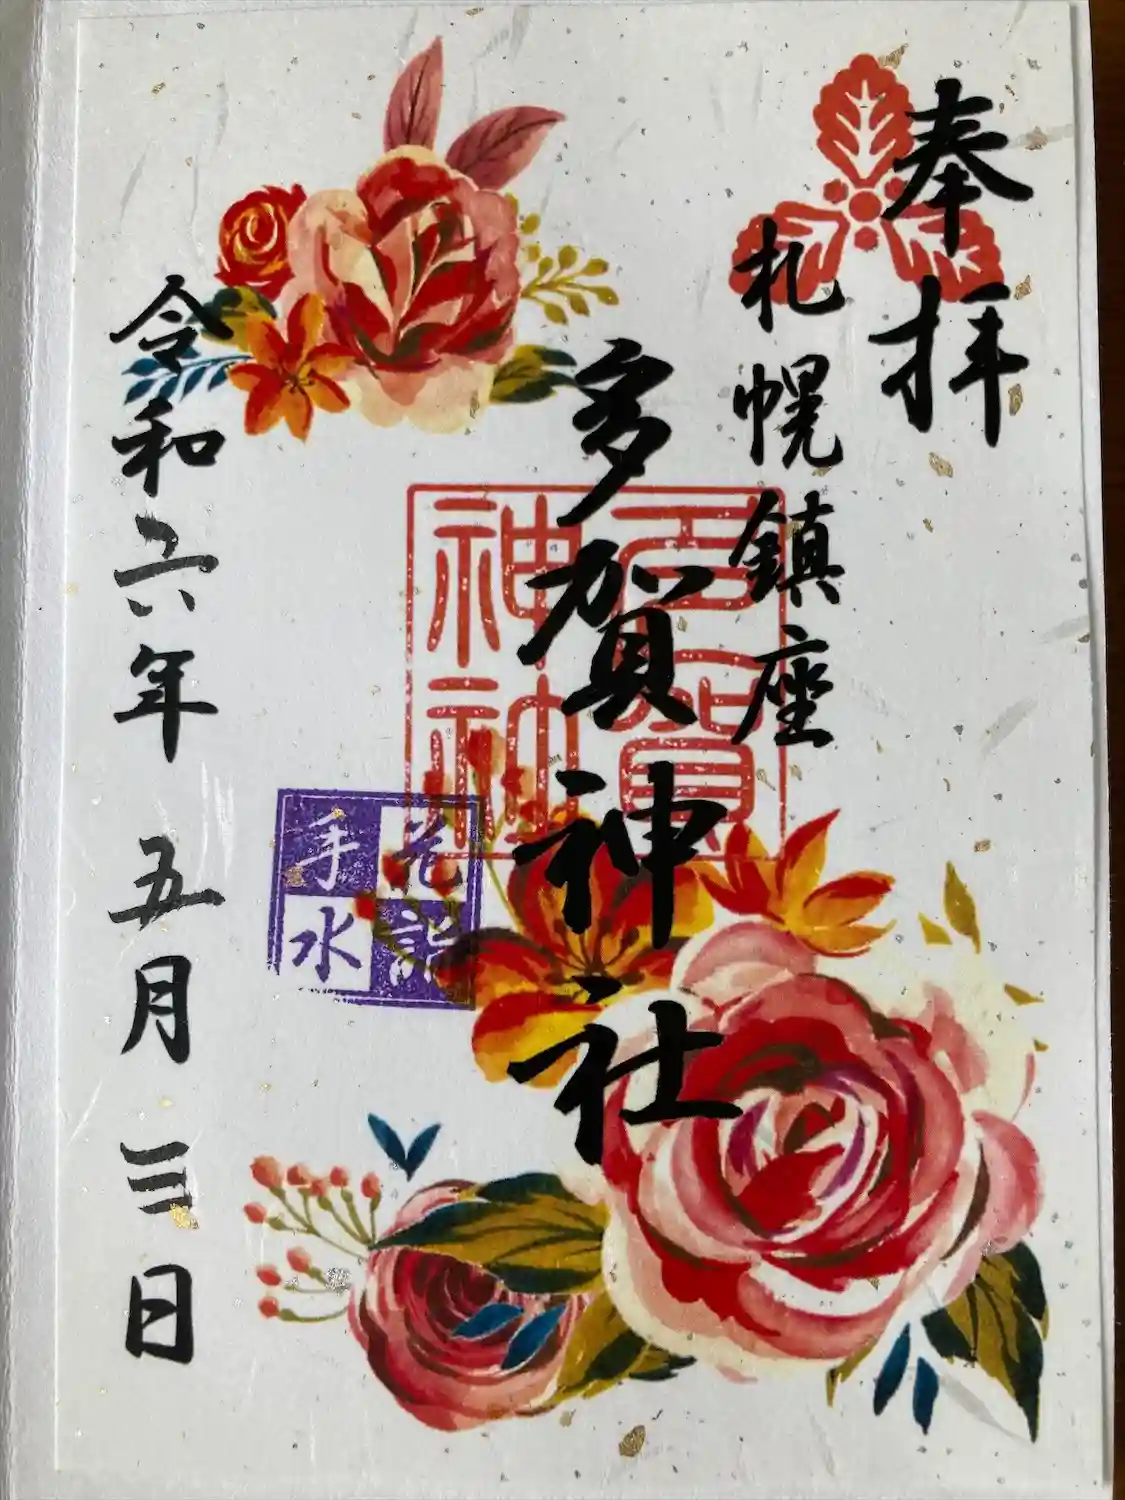 奉拝
札幌鎮座
多賀神社
多賀神社
花詣
手水
令和六年 五月 三日